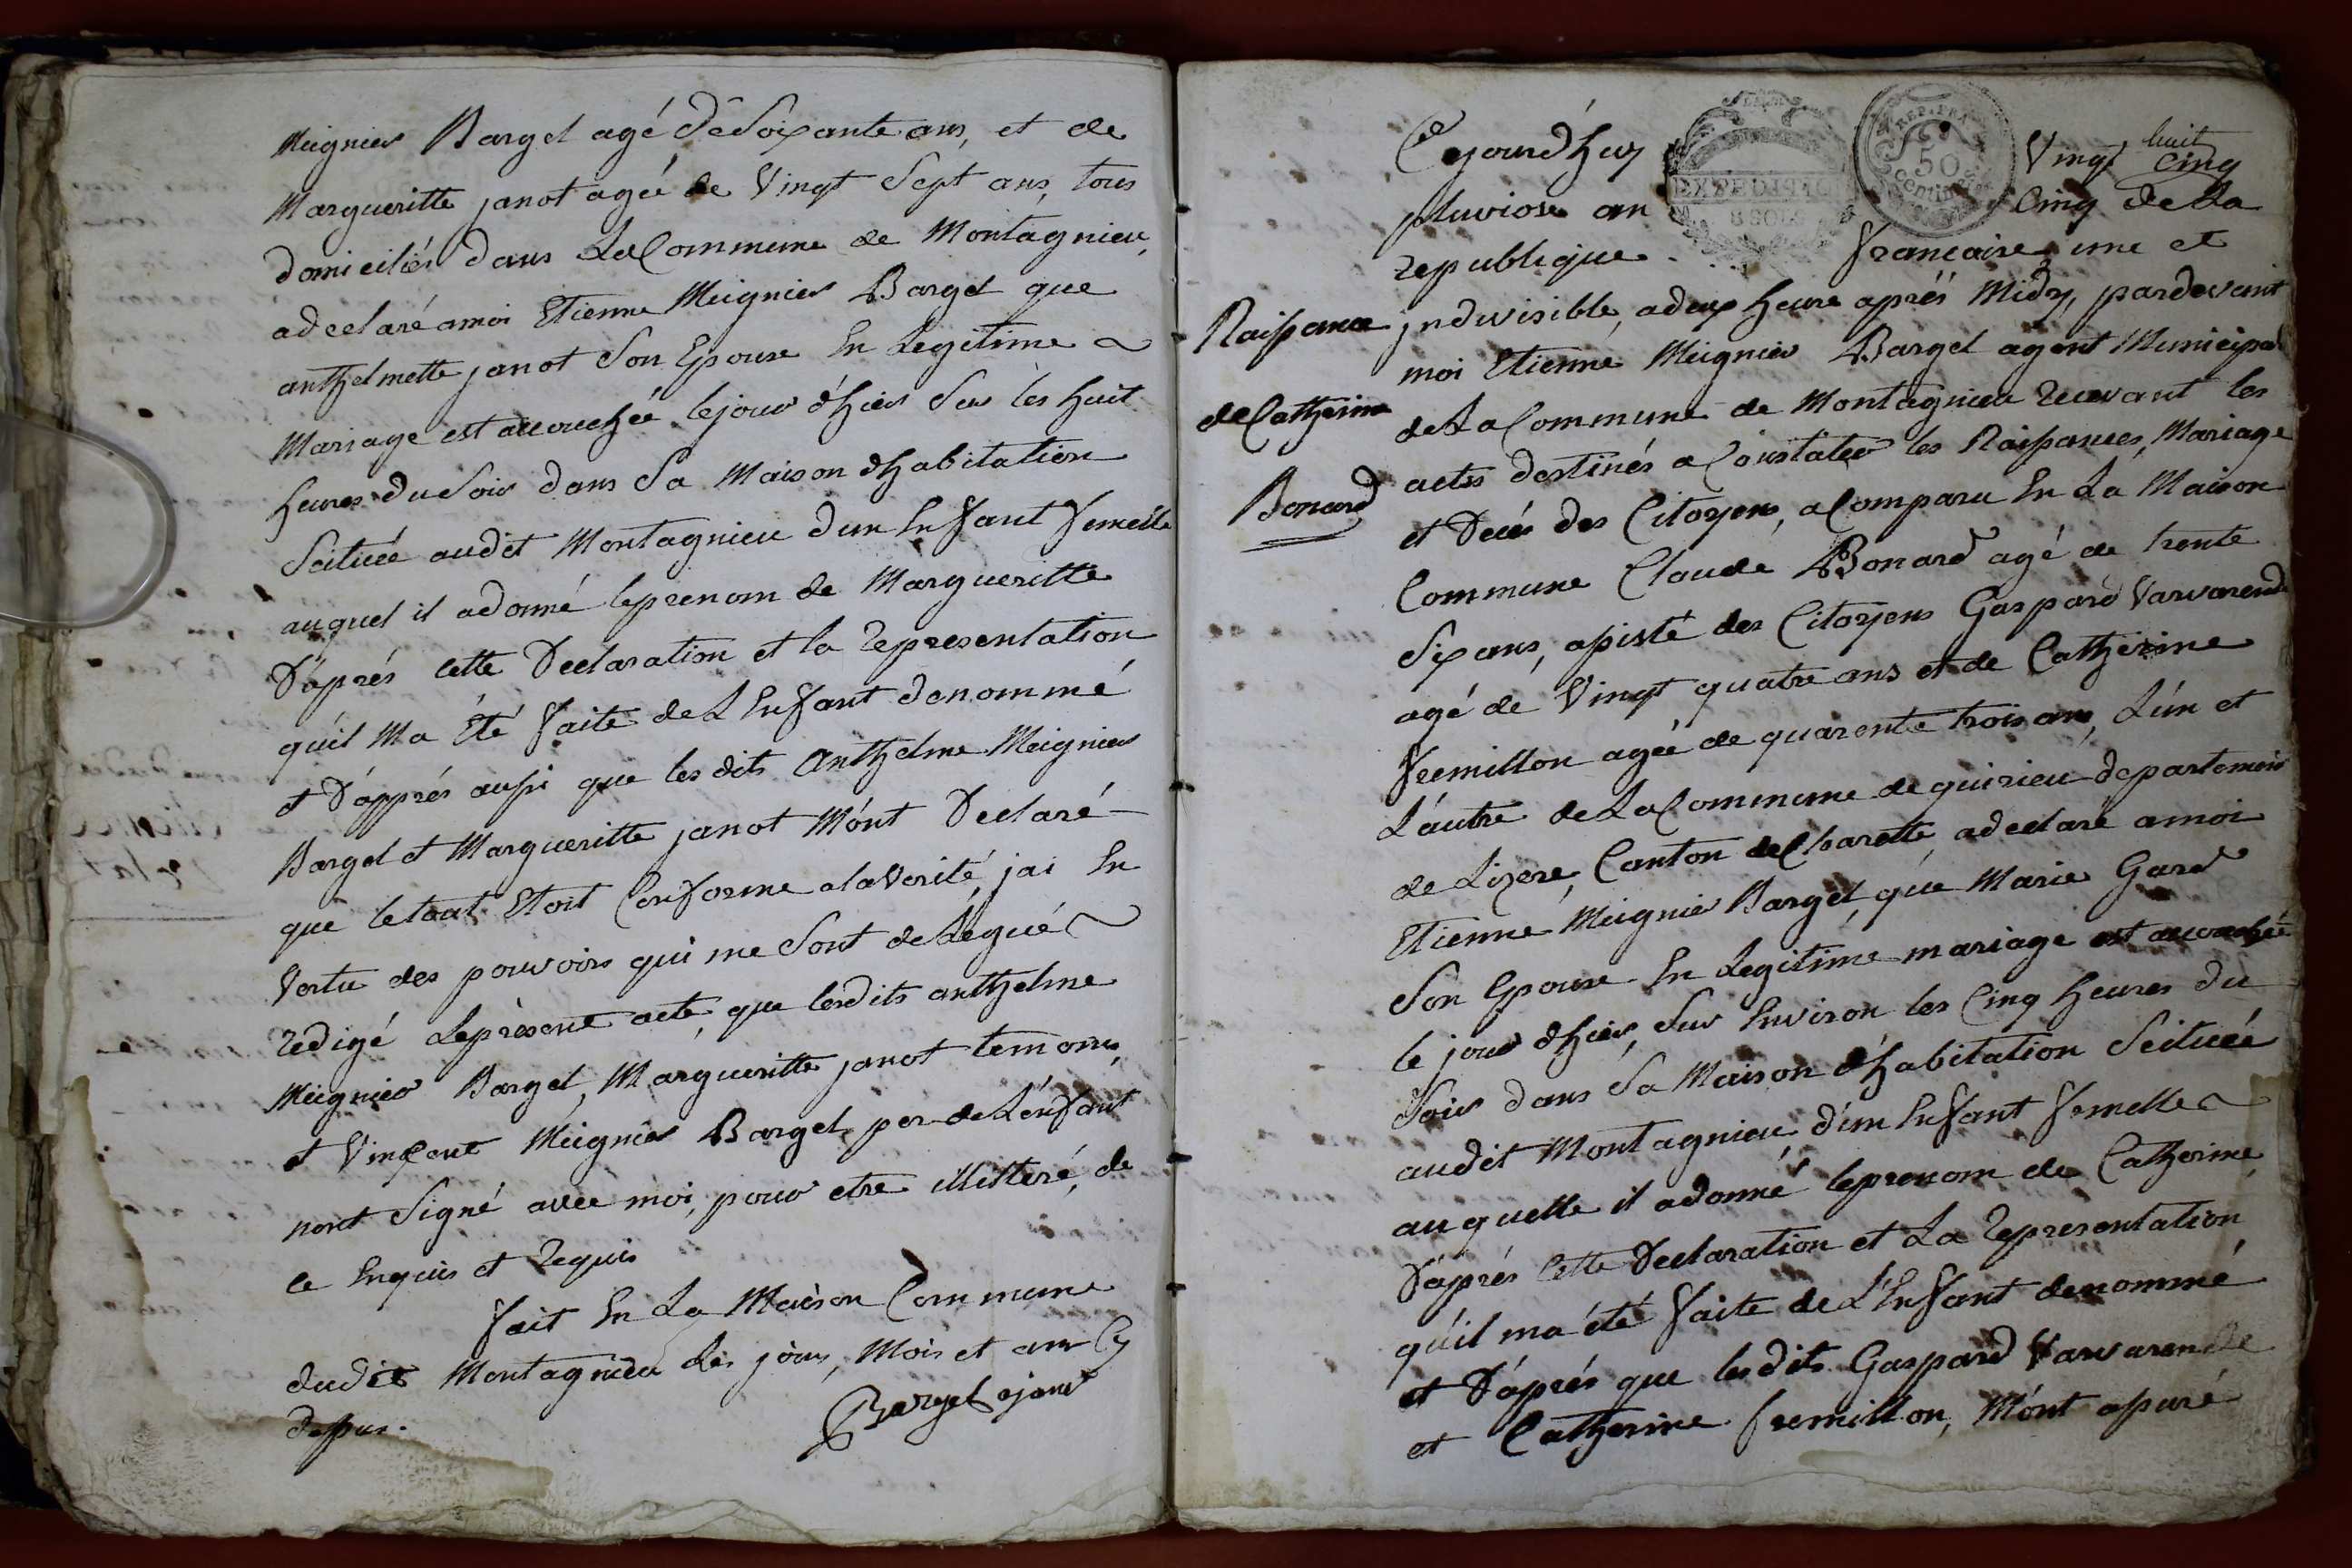 Meignier Bargel agé De Soixante ans, et de
Margueritte janot agée de Vingt Sept ans, tous
domiciliés dans La Commune de Montagnieu,
adeclaré amoi Etienne Meignier Bargel que
anthelmette janot Son Epouse En Legitime
Mariage est accouchée lejour d'hier Sur les huit
heures du Soir dans Sa Maison dhabitation
Scituée audit Montagnieu dun Enfant femelle
auquel il adonné leprenom de Margueritte
D'aprés cette Declaration et la representation
qu'il Ma Eté faite de L'Enfant denommé
et D'apprés aussi que les dits Anthelme Meignier
Bargel et Margueritte janot M'ont Declaré
que letout Etoit Conforme alaVerité, jai En
Vertu des pouvoirs qui me Sont delégué
redigé Leprèsent acte, que lesdits anthelme
Meignier Bargel, Margueritte janot temoins,
et Vinçent Meignier Bargel per de L'enfant
nont Signé avec moi, pour etre illitteré, de
ce Enquis et Requis
fait En La Maison Commune
dudit Montagnieu les jour, Mois et an Cy
dessus.
Bargel ajent
Cejourd'huy
Vingt huit
cinq
pluviose an
Cinq de La
republique
francaise une et
Naissance
de Catherine
Bonard
jndivisible, adeux heure aprés Midy, pardevant
moi Etienne Meignier Bargel agent Municipal
de La Commune de Montagnieu recevant les
actes destinés a Constater les Naissances, Mariage
et Decés des Citoyens, a Comparu En La Maison
Commune Claude Bonard agé de trente
Six ans, assisté des Citoyens Gaspard Varvarende
agé de Vingt quatre ans et de Catherine
fremillon agée de quarente trois ans, L'un et
L'autre de La Commune de quirieu departement
de Lizere, Canton de Charette, adeclaré amoi
Etienne Meignier Bargel que Marie Gard
Son Epouse En Legitime mariage est accouchée
le jour d'hier, Sur Environ les Cinq heures du
Soir dans Sa Maison d'habitation Scituée
audit Montagnieu d'un Enfant femelle
auquelle il adonné leprenom de Catherine,
D'aprés Cette Declaration et La representation
qu'il ma été faite de L'Enfant denommé
et D'aprés que les dits Gaspard Varvarende
et Catherine fremillon, M'ont assuré
REP. FRA.
50
centimes
EXPEDITIO
8 SOLS